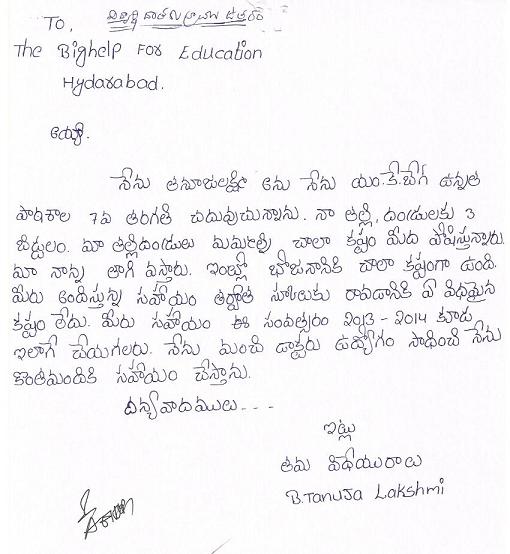 To,
విద్యార్థి దాతలకు వ్రాయు ఉత్తరం
The Bighelp For Education
Hydarabad.
అయ్యా.
నేను తనూజలక్ష్మి అను నేను యం.కే.బేగ్ ఉన్నత
పాఠశాల 7వ తరగతి చదువుచున్నాను. నా తల్లి, దండులకు 3
బిడ్డలం. మా తల్లిదండులు మమల్ని చాలా కష్టం మీద పోషిస్తున్నారు.
మా నాన్న తాగి వస్తారు. ఇంట్లో భోజనానికి చాలా కష్టంగా ఉంది.
మీరు అందిస్తున్న సహాయం తర్వాత స్కూలుకు రావడానికి ఏ విధమైన
కష్టం లేదు. మీరు సహాయం ఈ సంవత్సరం 2013 - 2014 కూడా
ఇలాగే చేయగలరు. నేను మంచి డాక్టరు ఉద్యోగం సాధించి నేను
కొంతమందికి సహాయం చేస్తాను.
దన్యవాదములు - - -
ఇట్లు
తమ విధేయురాలు
B.Tanuja Lakshmi